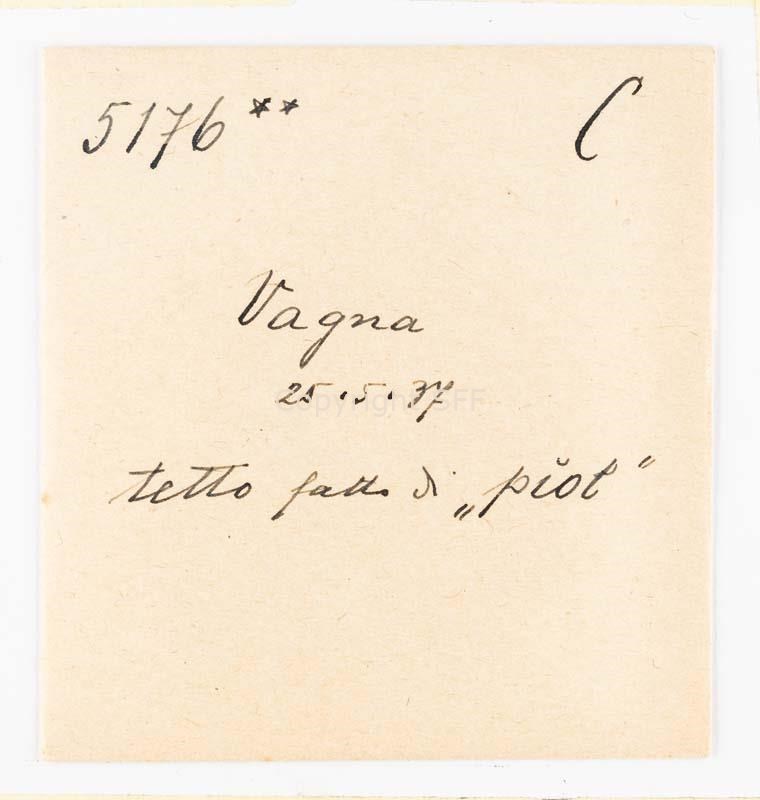 5176** C
Vagna
25.5.37
Copyright SFF
tetto fatto di „piot"